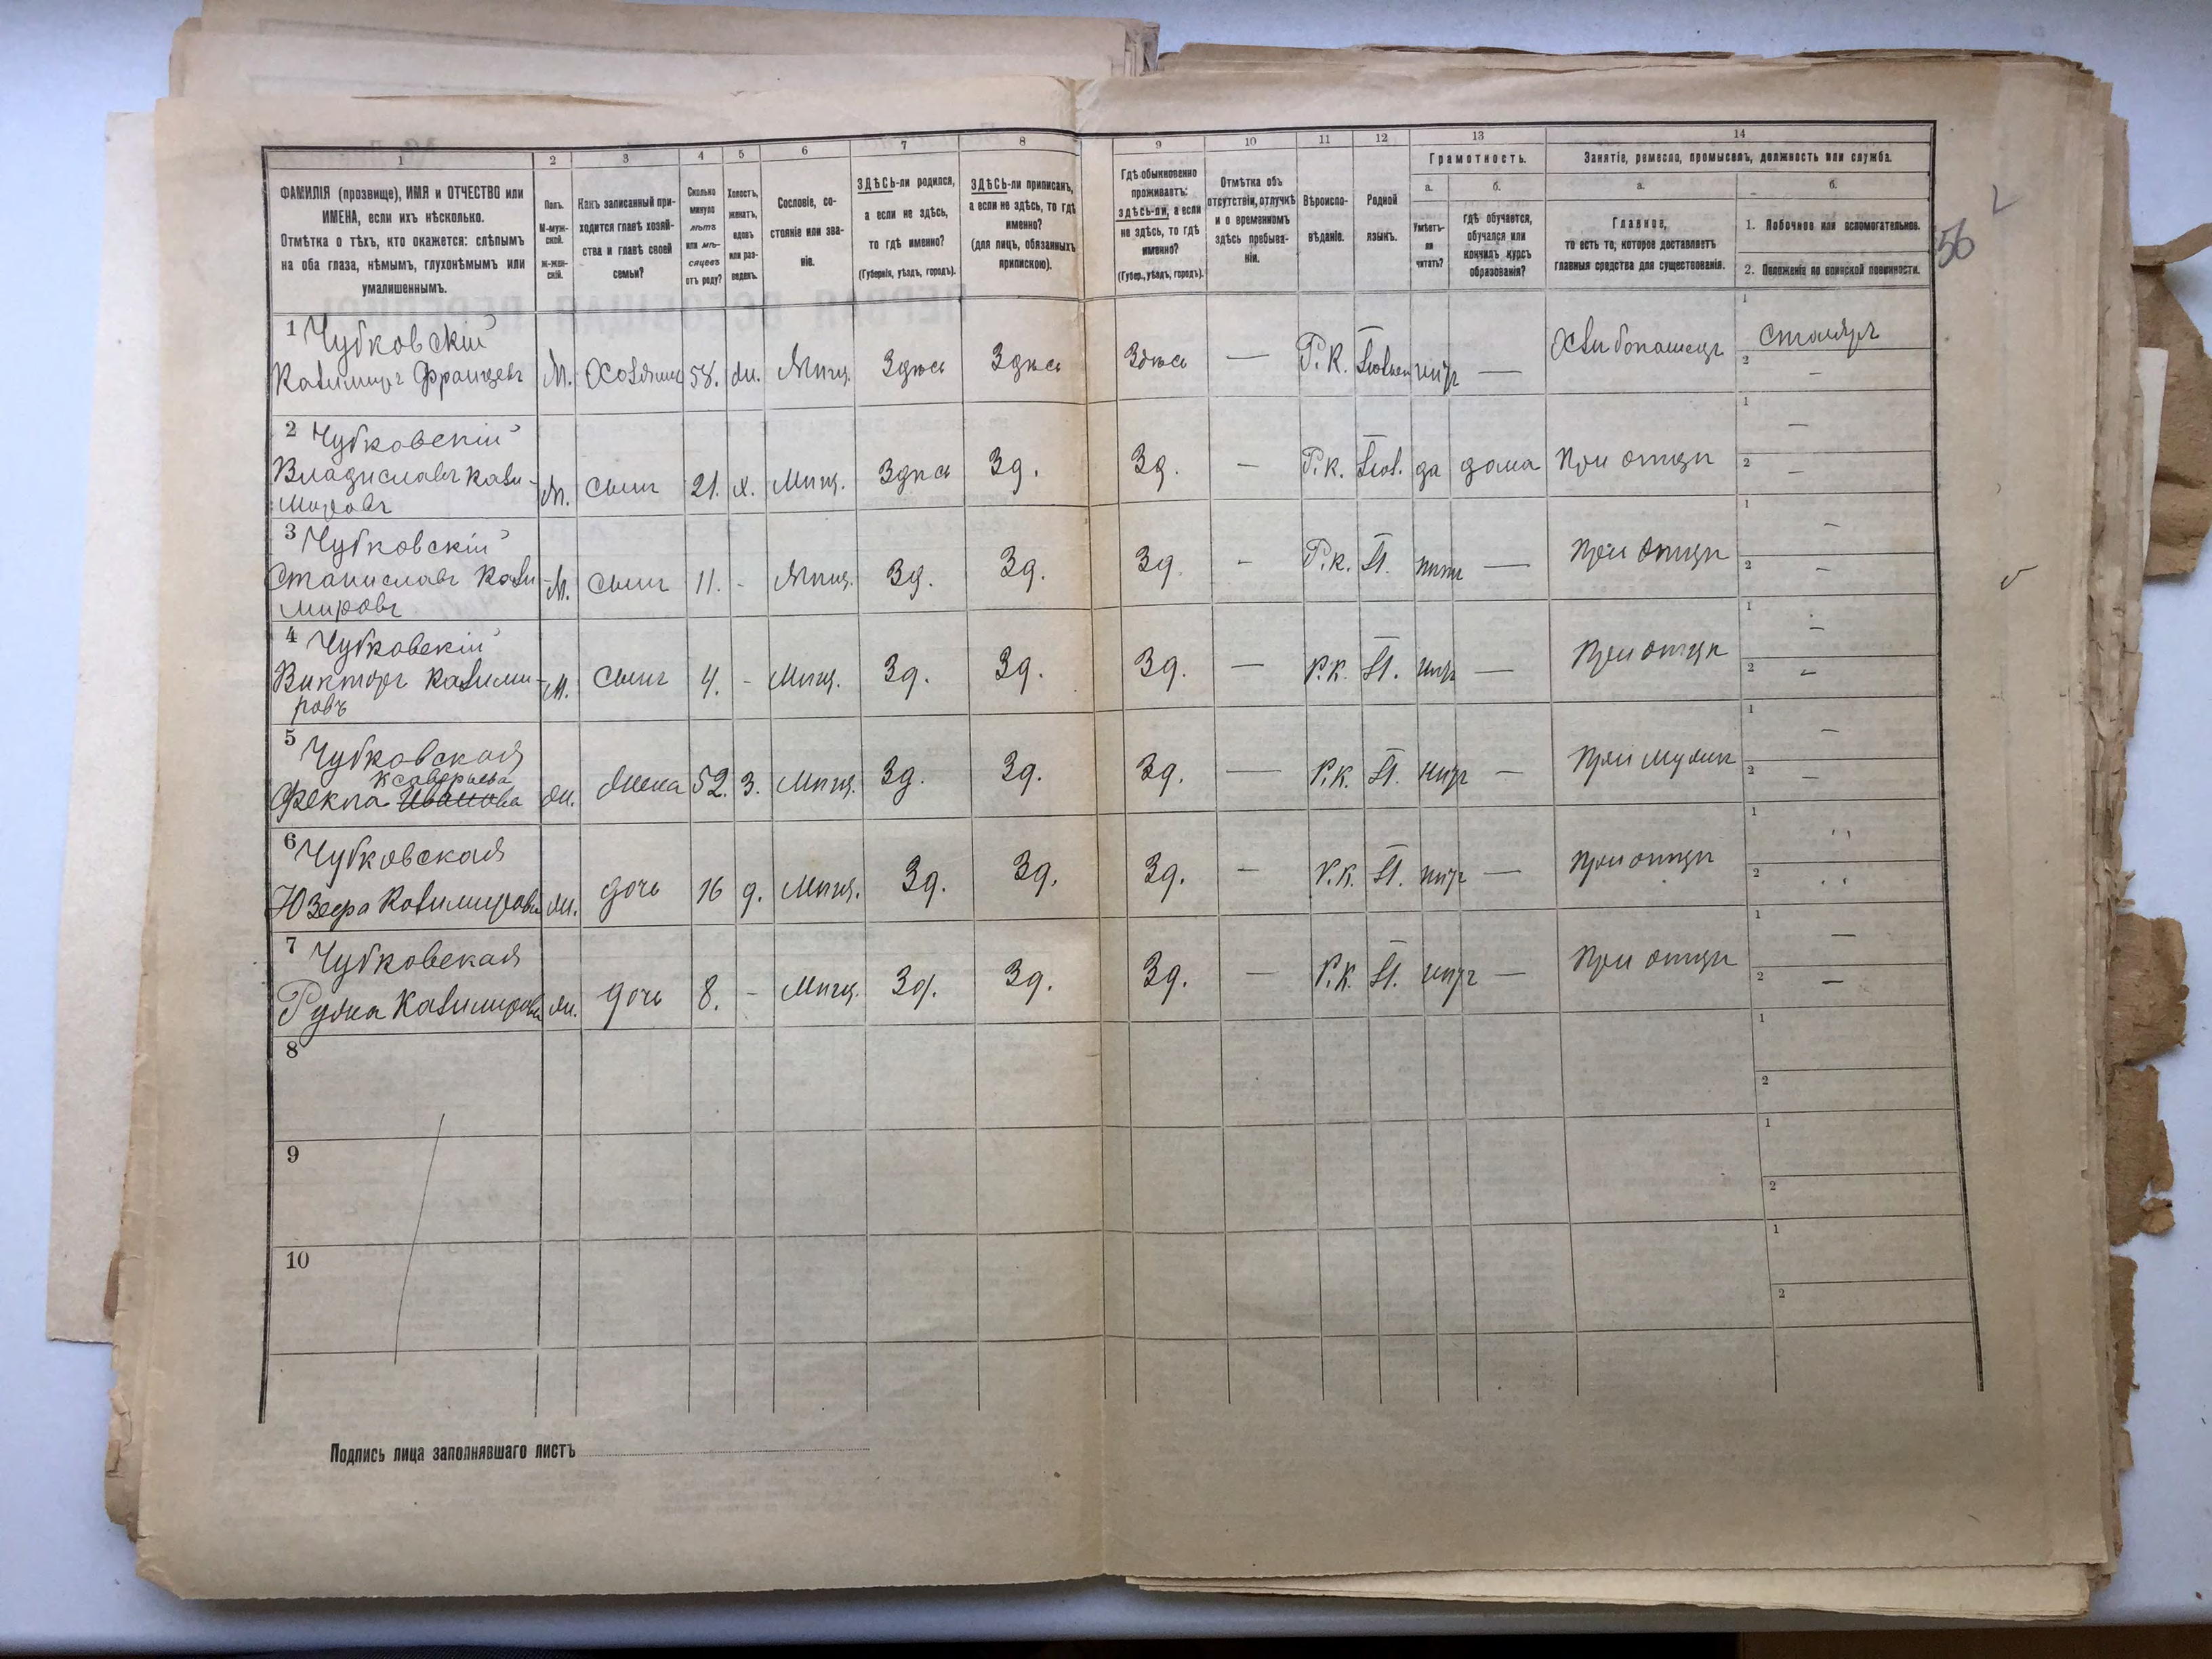 1
2
3
4
5
6
7
8
9
10
11
12
13
14
ФАМИЛІЯ (прозвище), ИМЯ и ОТЧЕСТВО или
ИМЕНА, если ихъ нѣсколько.
Отмѣтка о тѣхъ, кто окажется: слѣпымъ
на оба глаза, нѣмымъ, глухонѣмымъ или
умалишеннымъ.
Полъ.
М-муж-
ской.
ж-жен-
скій.
Какъ записанный при-
ходится главѣ хозяй-
ства и главѣ своей
семьи?
Сколько
минуло
лѣтъ
или мѣ-
сяцевъ
отъ роду?
Холостъ,
женатъ,
вдовъ
или раз-
веденъ.
Сословіе, со-
стояніе или зва-
ніе.
ЗДѢСЬ-ли родился,
а если не здѣсь,
то гдѣ именно?
(Губернія, уѣздъ, городъ).
ЗДѢСЬ-ли приписанъ,
а если не здѣсь, то гдѣ
именно?
(для лицъ, обязанныхъ
припискою).
Гдѣ обыкновенно
проживаетъ:
здѣсь-ли, а если
не здѣсь, то гдѣ
именно?
(Губер., уѣздъ, городъ).
Отмѣтка объ
отсутствіи, отлучкѣ
и о временномъ
здѣсь пребыва-
ніи.
Вѣроиспо-
вѣданіе.
Родной
языкъ.
Грамотность.
а.
Умѣетъ-
ли
читать?
б.
гдѣ обучается,
обучался или
кончилъ курсъ
образованія?
Занятіе, ремесло, промыселъ, должность или служба.
а.
Главное,
то есть то, которое доставляетъ
главныя средства для существованія.
б.
1. Побочное или вспомогательное.
2. Положеніе по воинской повинности.
56
1 Чубковскій
Казимиръ Францевъ М. Хозяинъ 58. ж. Мѣщ. Здѣсь Здѣсь Здѣсь — Р.К. нѣтъ — Хлѣбопашецъ
1 Столяръ
2 —
2 Чубковскій
Владиславъ Кази-
мировъ М. сынъ 21. х. Мѣщ. Здѣсь Зд. Зд. — Р.К. да дома При отцѣ
1 —
2 —
3 Чубковскій
Станиславъ Кази-
мировъ М. сынъ 11. - Мѣщ. Зд. Зд. Зд. - Р.К. нѣтъ — При отцѣ
1 —
2 —
4 Чубковскій
Викторъ Казими-
ровъ М. сынъ 4. - Мѣщ. Зд. Зд. Зд. — Р.К. нѣтъ — При отцѣ
1 —
2 —
5 Чубковская
Ксаверьева
Фекла Иванова ж. жена 52. з. Мѣщ. Зд. Зд. Зд. — Р.К. нѣтъ — При мужѣ
1 —
2 —
6 Чубковская
Юзефа Казимирова ж. дочь 16 д. Мѣщ. Зд. Зд. Зд. — Р.К. нѣтъ — При отцѣ
1
2
7 Чубковская
Казимирова ж. дочь 8. - Мѣщ. Зд. Зд. Зд. — Р.К. нѣтъ — При отцѣ
1 —
2 —
8
1
2
9
1
2
10
1
2
Подпись лица заполнявшаго листъ